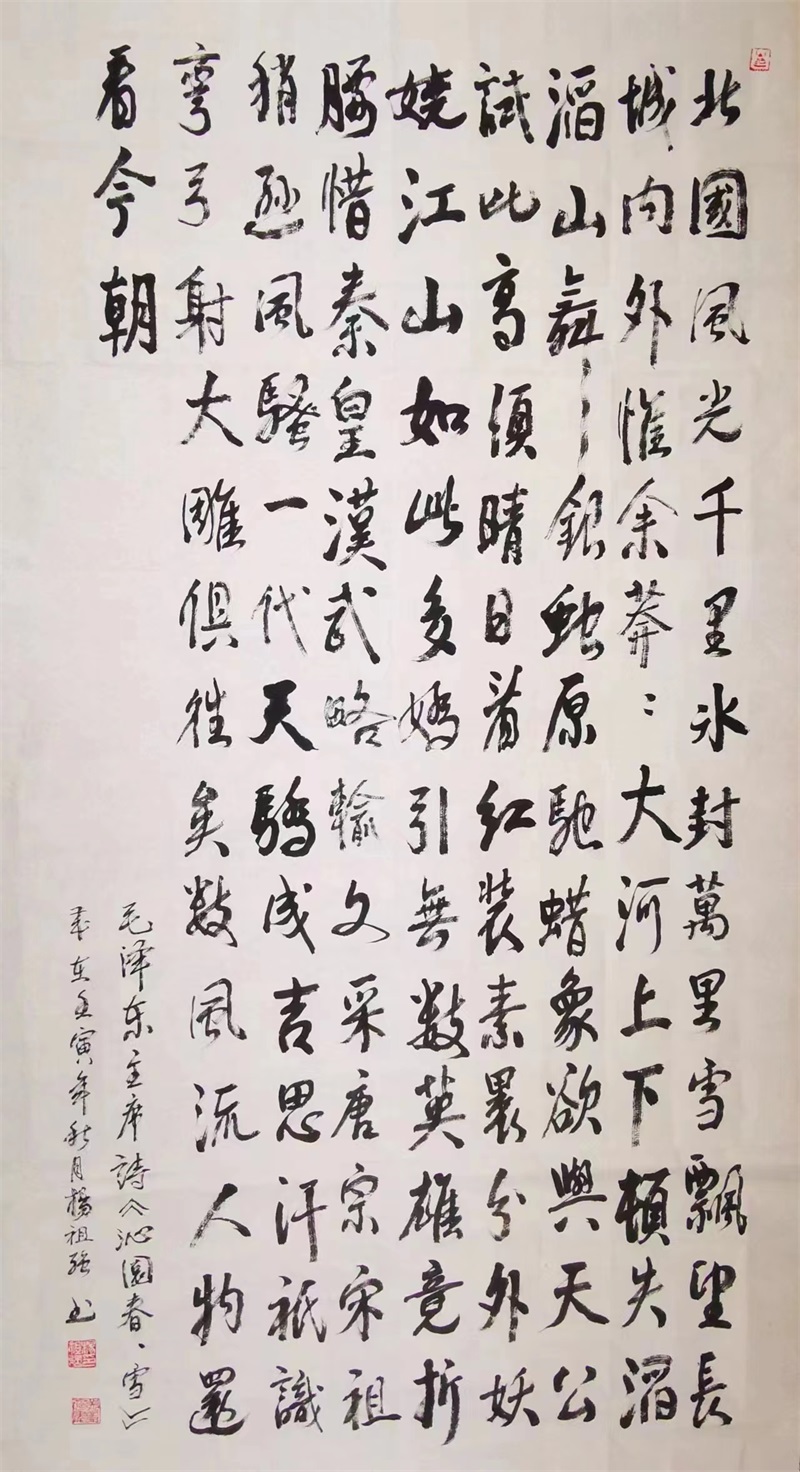 北國風光千里冰封萬里雪飄望長
城内外惟余莽〻大河上下頓失滔
滔山舞銀蛇原馳蜡象欲與天公
試比高須晴日看紅裝素裹分外妖
嬈江山如此多嬌引無数英雄竟折
腰惜秦皇漢武略輸文采唐宗宋祖
稍遜風騷一代天驕成吉思汗祇識
彎弓射大雕俱往矣数風流人物還
看今朝
毛泽东主席詩《沁園春、雪》
歲在壬寅年秋月楊祖強书